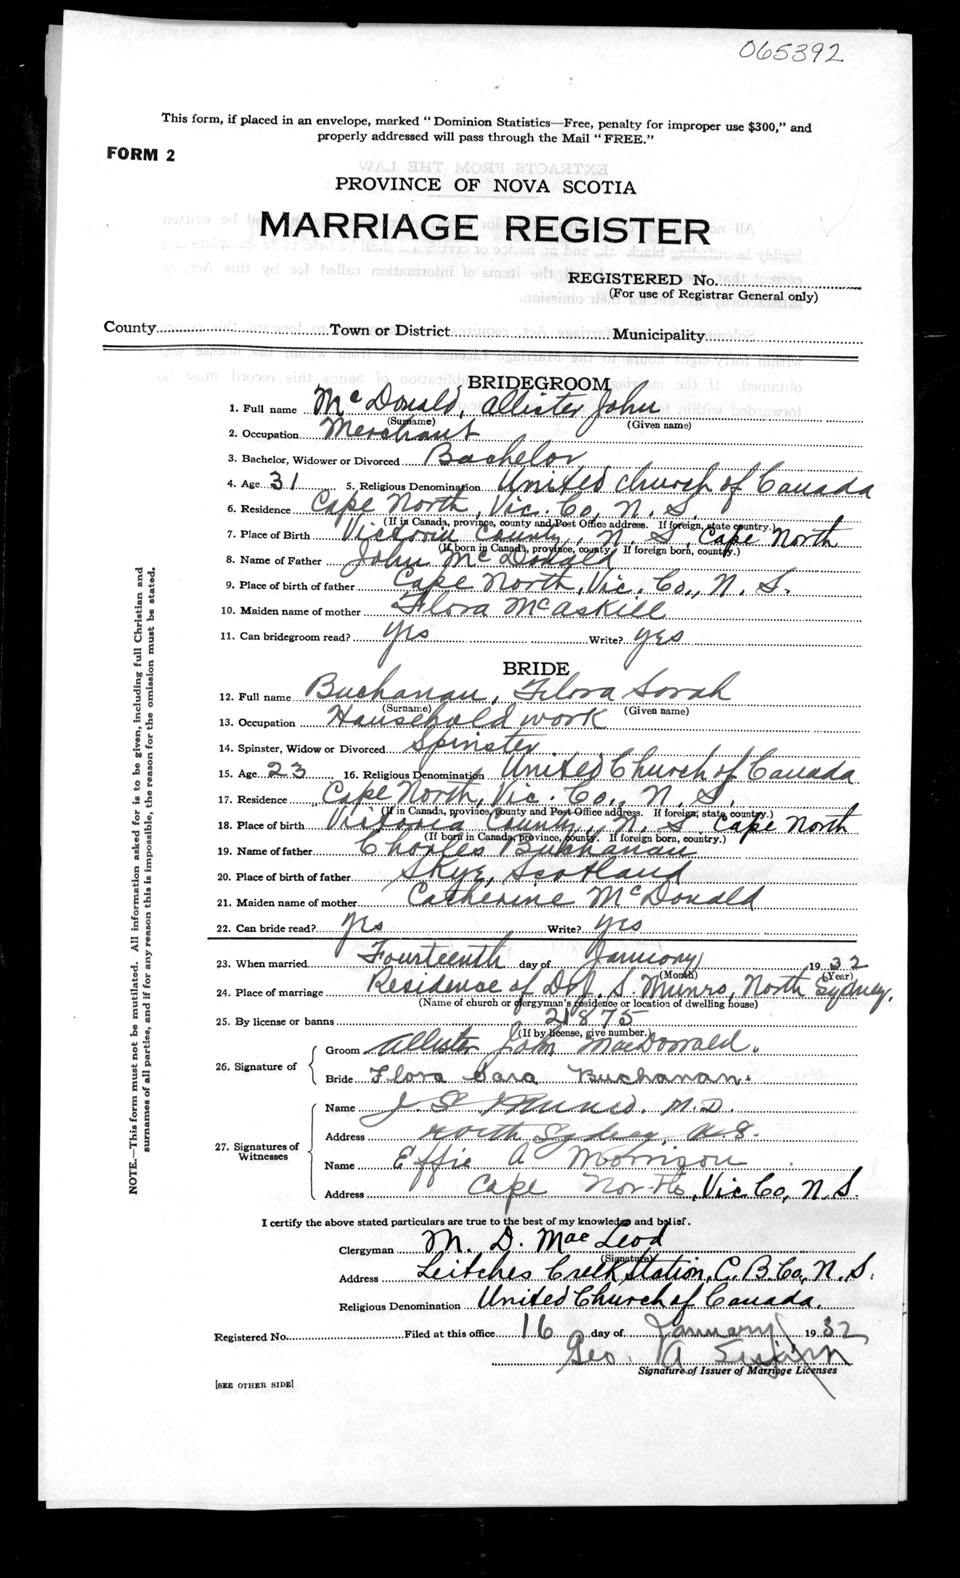 065392
This form, if placed in an envelope, marked "Dominion Statistics—Free, penalty for improper use $300," and
properly addressed will pass through the Mail "FREE."
FORM 2
PROVINCE OF NOVA SCOTIA
MARRIAGE REGISTER
REGISTERED No.
(For use of Registrar General only)
County Town or District Municipality
BRIDEGROOM
1. Full name McDonald, Allister John
(Surname) (Given name)
2. Occupation Merchant
3. Bachelor, Widower or Divorced Bachelor
4. Age 31 5. Religious Denomination United Church of Canada
6. Residence Cape North, Vic. Co., N. S.
(If in Canada, province, county and Post Office address. If foreign, state country.)
7. Place of Birth Victoria County, N. S. Cape North
(If born in Canada, province, county. If foreign born, country.)
8. Name of Father John McDonald
9. Place of birth of father Cape North, Vic. Co., N. S.
10. Maiden name of mother Flora McAskill
11. Can bridegroom read? yes Write? yes
BRIDE
12. Full name Buchanan, Flora Sarah
(Surname) (Given name)
13. Occupation Household work
14. Spinster, Widow or Divorced Spinster
15. Age 23 16. Religious Denomination United Church of Canada
17. Residence Cape North, Vic. Co., N. S.
(If in Canada, province, county and Post Office address. If foreign, state country.)
18. Place of birth Victoria County, N. S. Cape North
(If born in Canada, province, county. If foreign born, country.)
19. Name of father Charles Buchanan
20. Place of birth of father Skye, Scotland
21. Maiden name of mother Catherine McDonald
22. Can bride read? yes Write? yes
23. When married Fourteenth day of January 1932
(Month) (Year)
24. Place of marriage Residence of Dr J. S. Munro, North Sydney,
(Name of church or clergyman's residence or location of dwelling house)
25. By license or banns 21875
(If by license, give number.)
26. Signature of Groom Allister John MacDonald.
Bride Flora Sara Buchanan.
27. Signatures of Witnesses Name J. S. Munro. M.D.
Address North Sydney, N.S.
Name Effie A Morrison
Address Cape North, Vic Co, N. S.
I certify the above stated particulars are true to the best of my knowledge and belief.
Clergyman M. D. MacLeod
(Signature)
Address Leitches Creek Station, C. B. Co, N. S.
Religious Denomination United Church of Canada.
Registered No. Filed at this office 16 day of January 1932
Geo. A
Signature of Issuer of Marriage Licenses
[SEE OTHER SIDE]
NOTE.—This form must not be mutilated. All information asked for is to be given, including full Christian and
surnames of all parties, and if for any reason this is impossible, the reason for the omission must be stated.